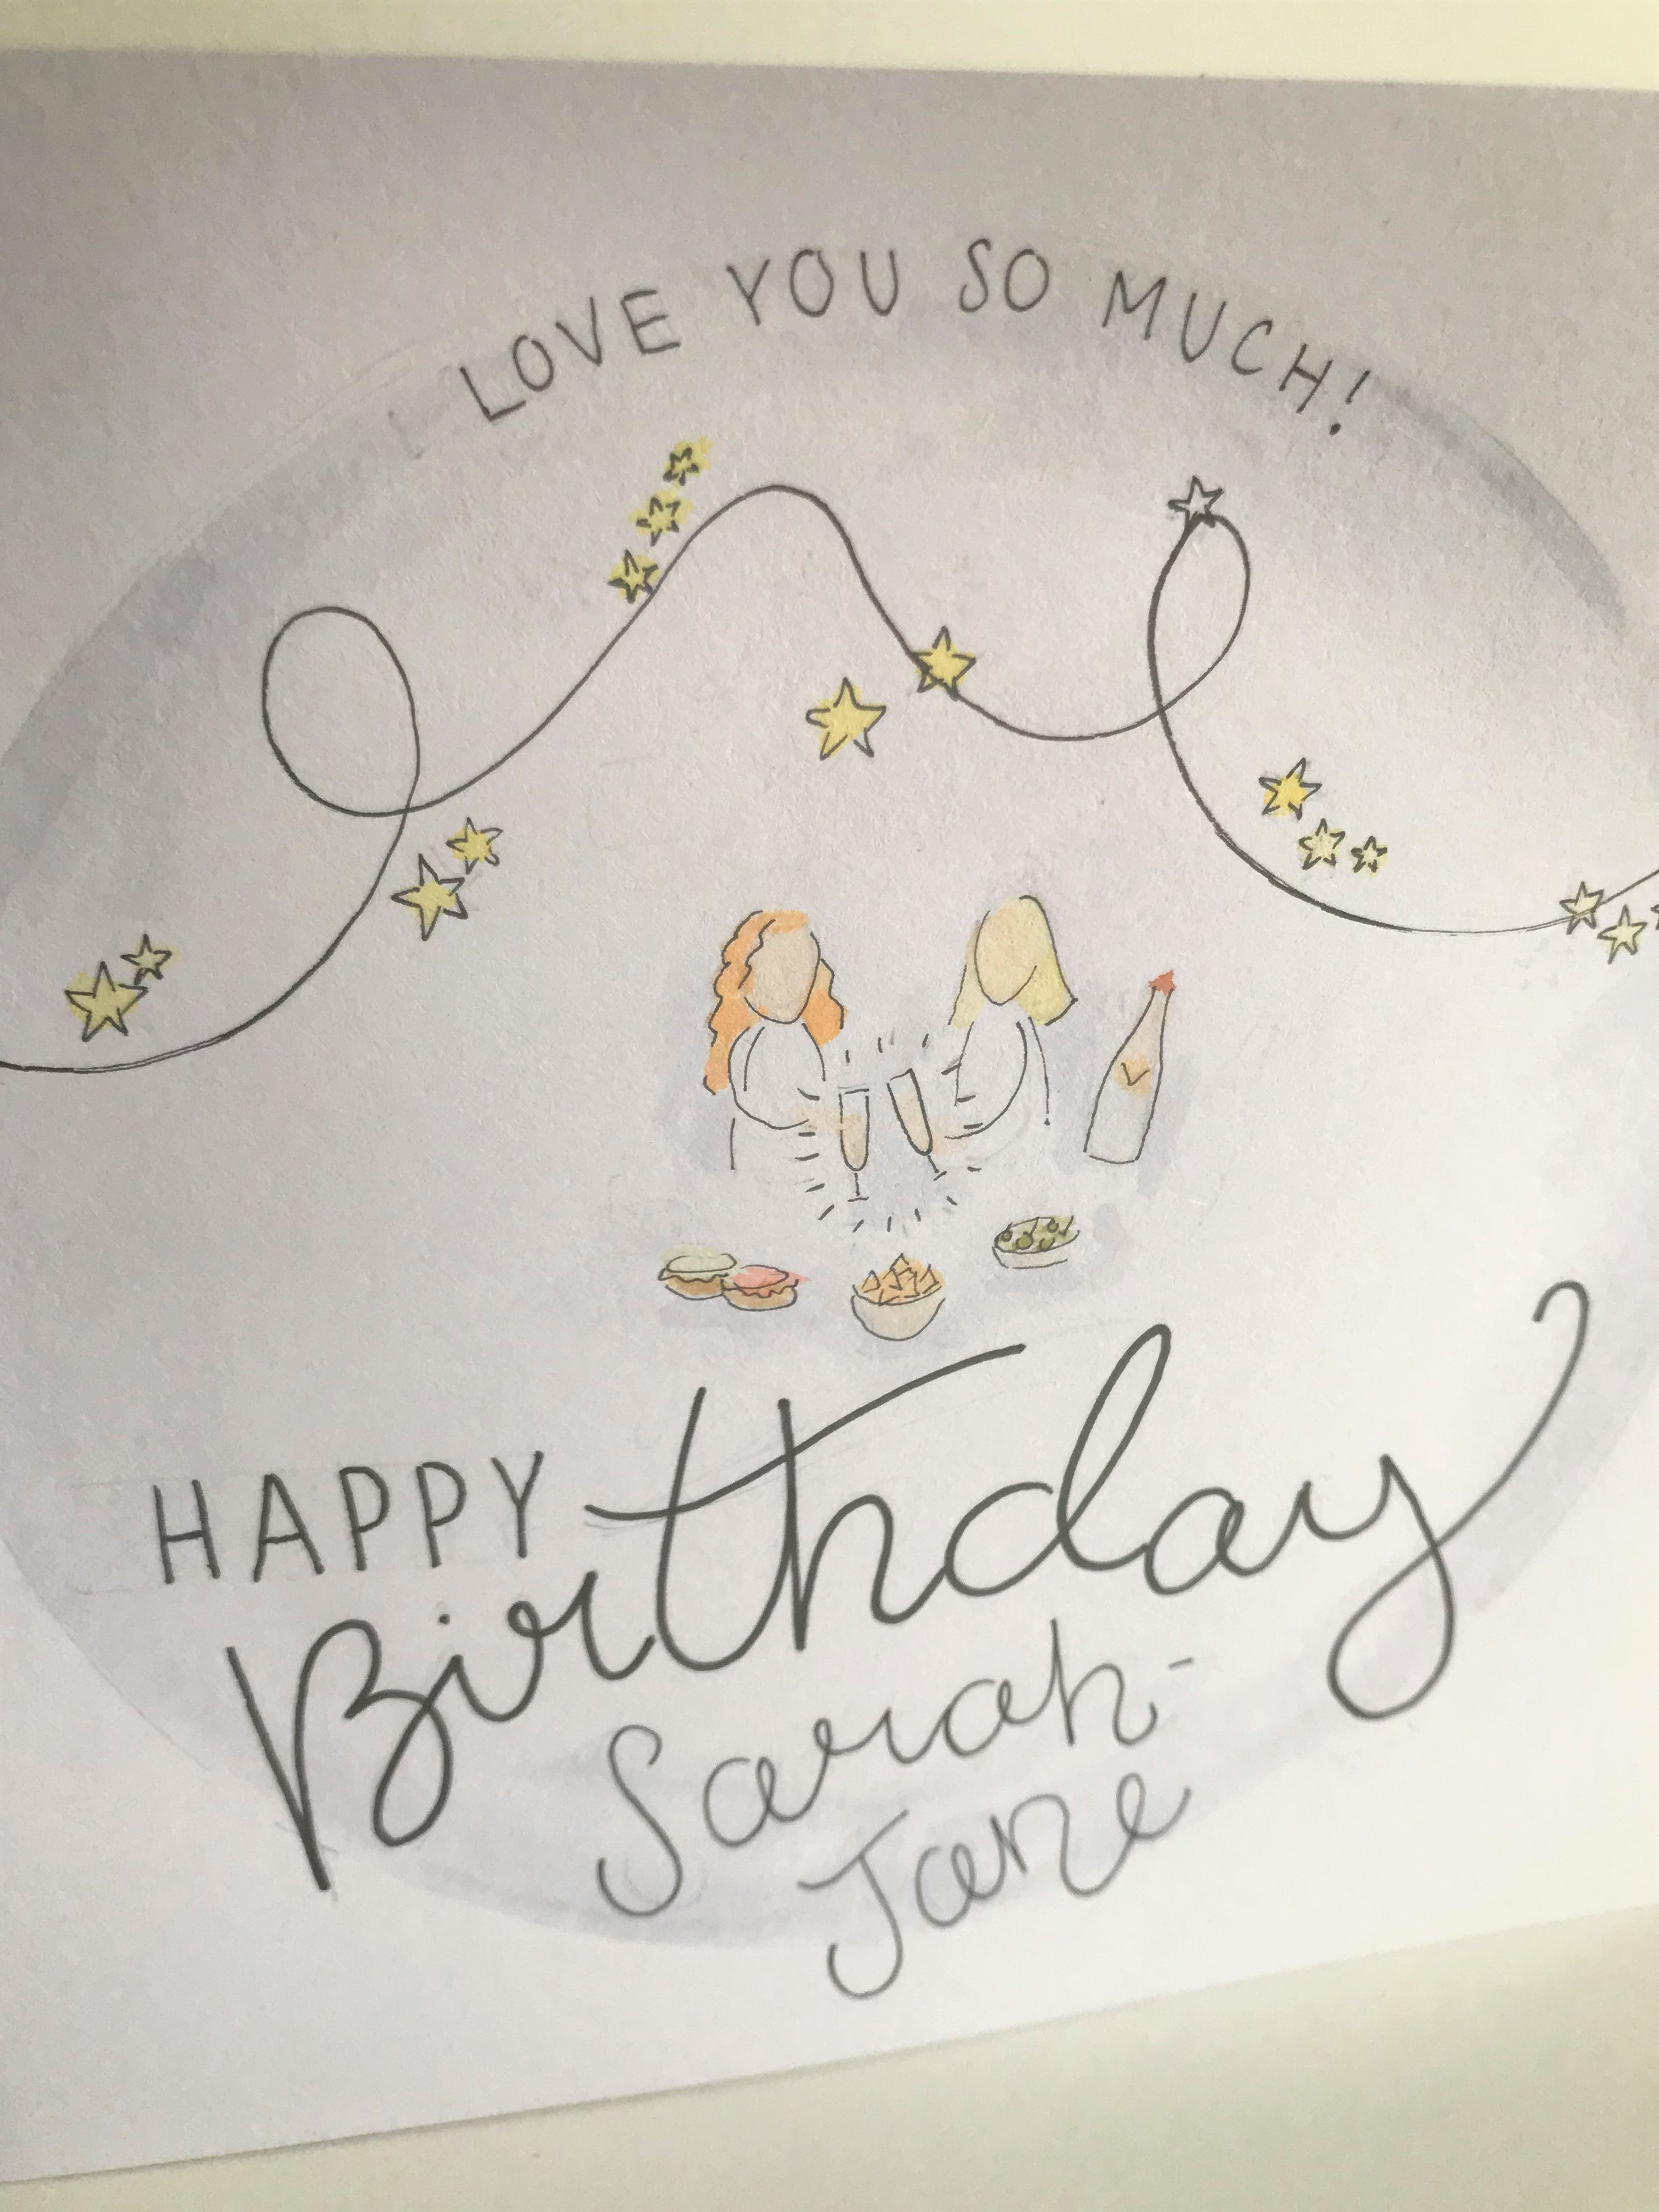 LOVE YOU SO MUCH!
HAPPY
Birthday
Sarah-
Jane